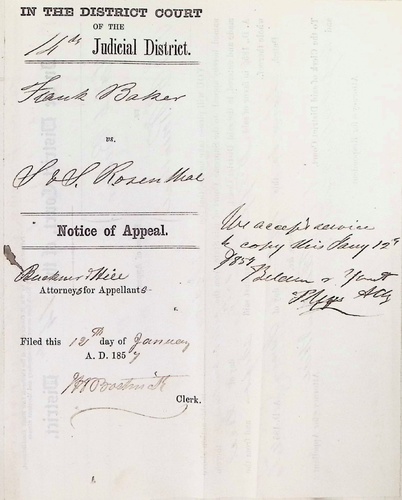 IN THE DISTRICT COURT
OF THE
14th Judicial District.
Frank Baker
vs.
S & S. Rosenthal
Notice of Appeal.
Buckner & Hill
Attorneys for Appellants
Filed this 12th day of January
A. D. 1857
Clerk.
We accept service
by copy this Jany 12th
1857
Belden &
Attys